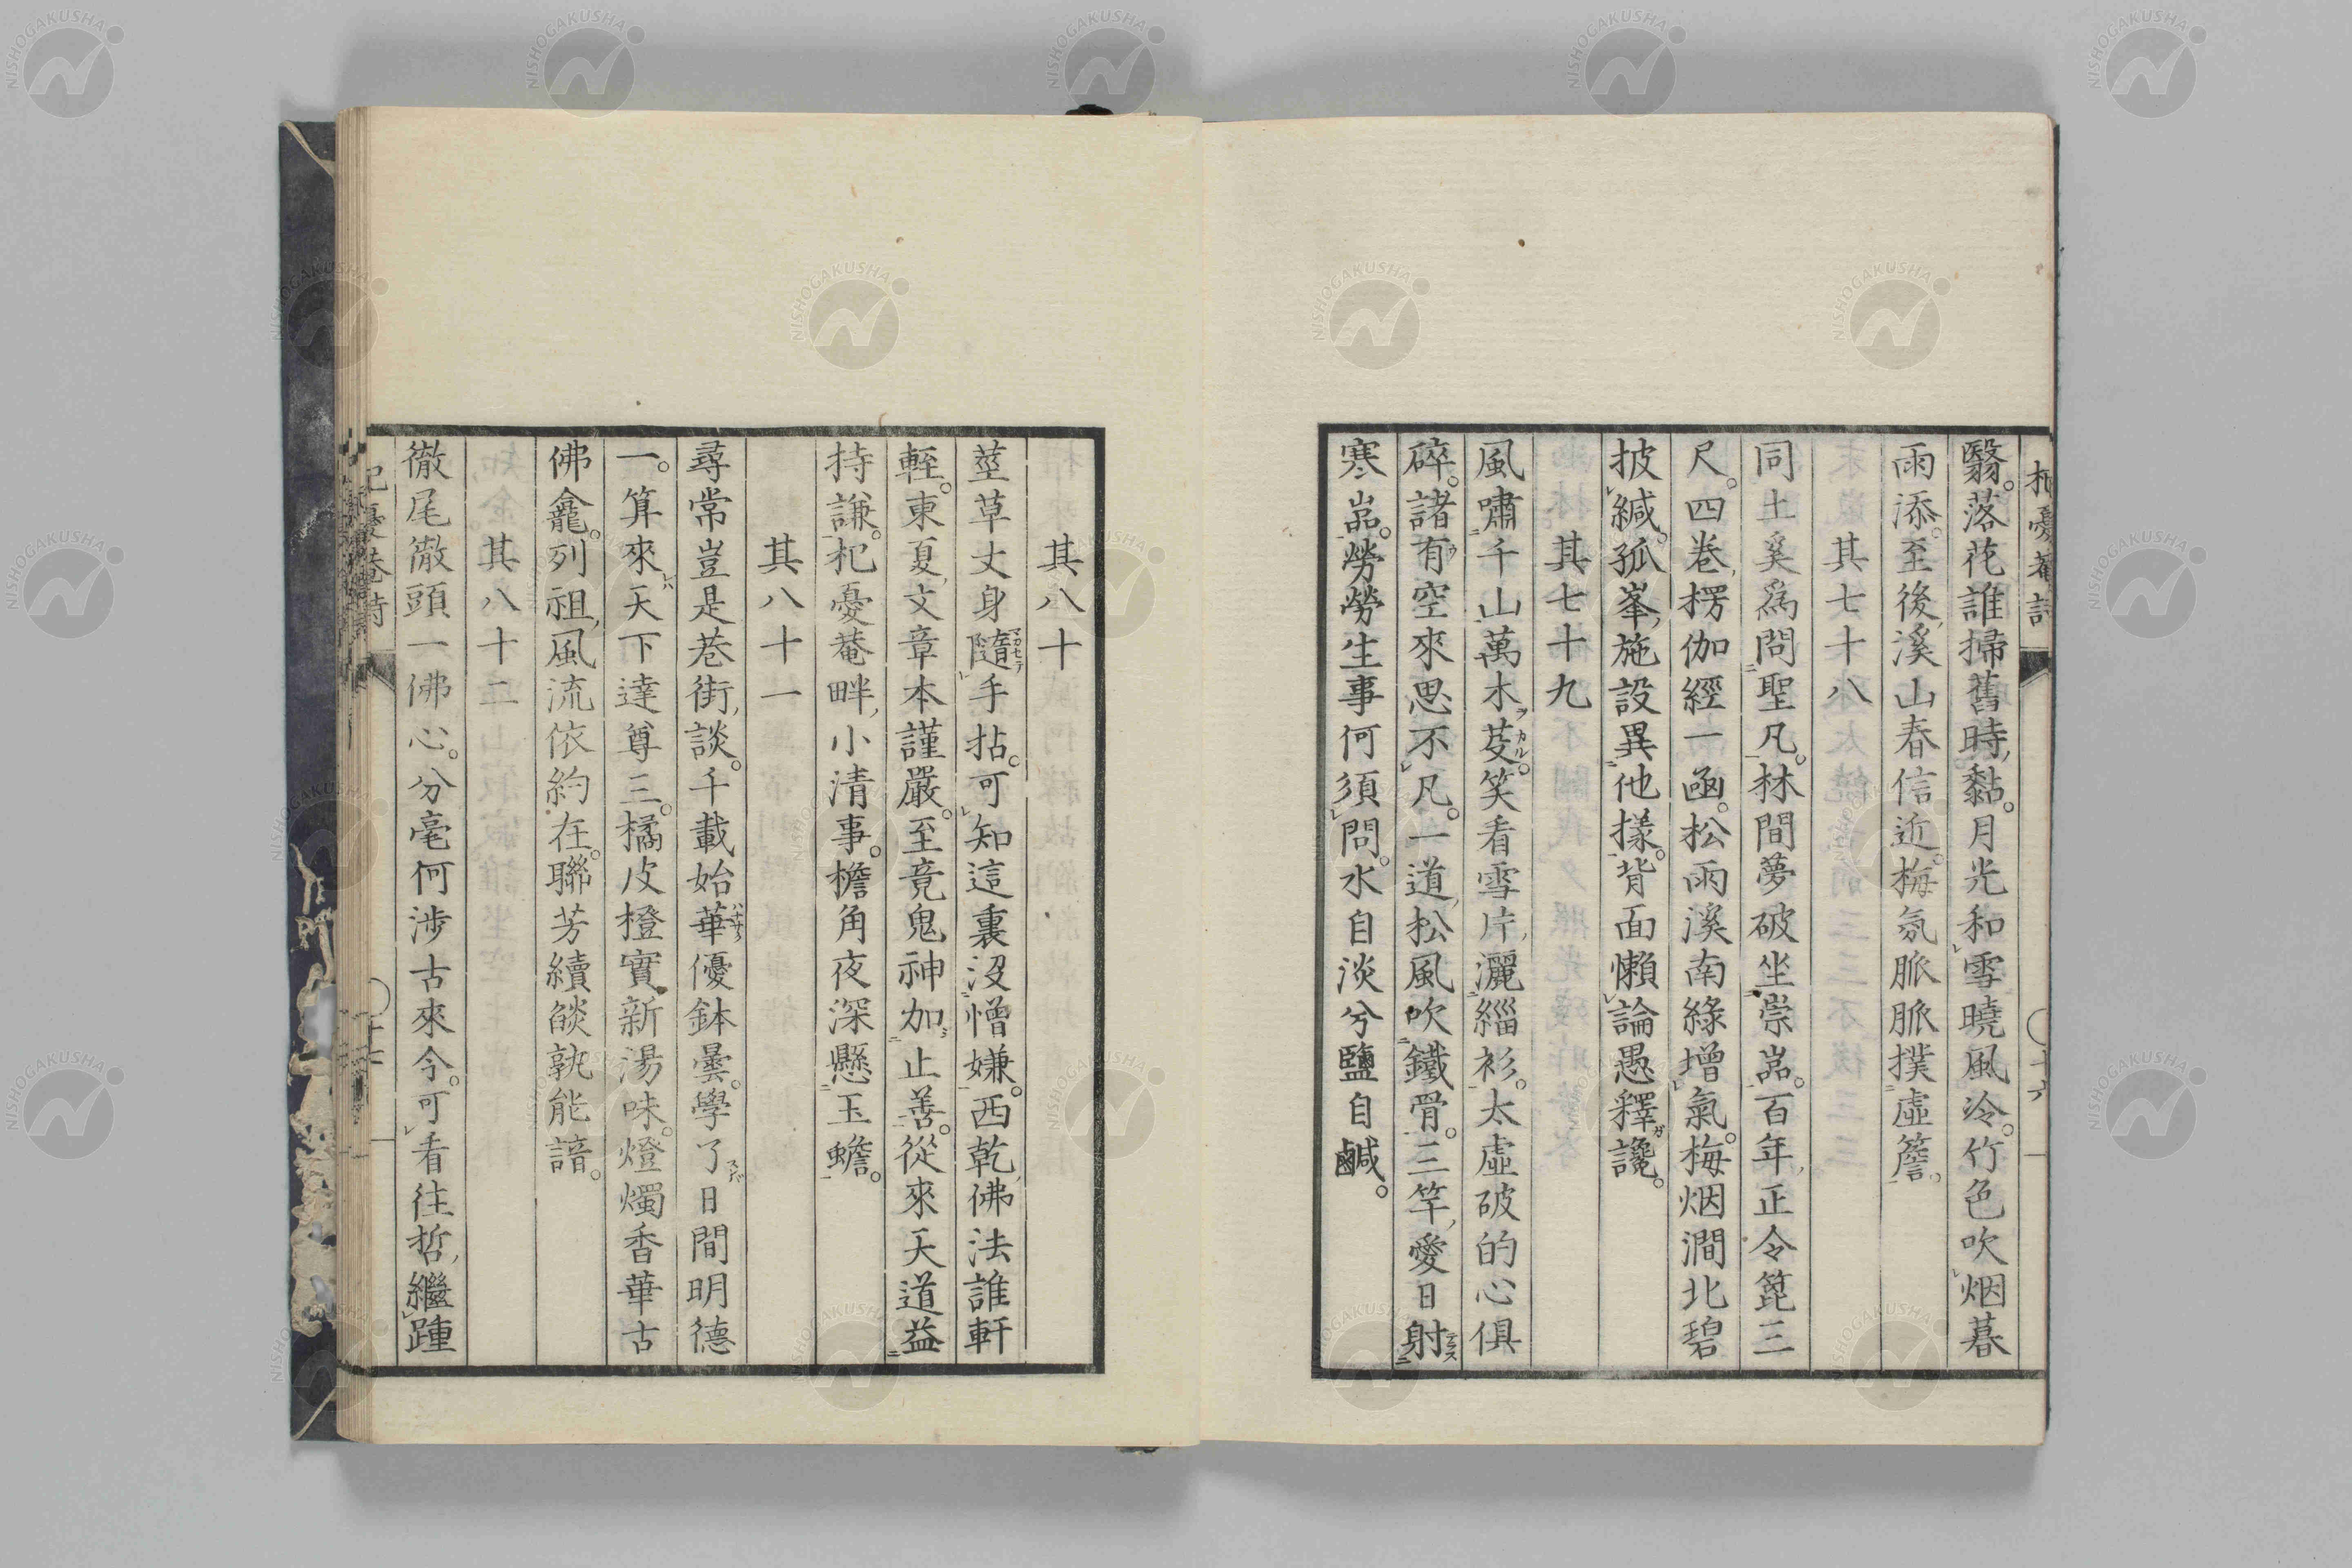 杞憂菴詩
翳。落花誰掃舊時黏。月光和雪曉風冷。竹色吹烟暮
雨添。至後溪山春信近。梅氛脈脈撲虛簷。
其七十八
同土奚爲問聖凡。林間夢破坐崇嵓。百年正令箆三
尺。四卷楞伽經一函。松雨溪南綠增氣。梅烟澗北碧
披緘。孤峯施設異他樣。背面懶論愚釋讒。
其七十九
風嘯千山萬木芟。笑看雪片灑緇衫。太虛破的心俱
碎。諸有空來思不凡。一道松風吹鐵骨。三竿愛日射
寒嵓。勞勞生事何須問。水自淡兮鹽自鹹。
其八十
莖草丈身隨手拈。可知這裏沒憎嫌。西乾佛法誰軒
輊。東夏文章本謹嚴。至竟鬼神加止善。從來天道益
持謙。杞憂菴畔小清事。檐角夜深懸玉蟾。
其八十一
尋常豈是巷街談。千載始華優鉢曇。學了日間明德
一。算來天下達尊三。橘皮橙實新湯味。燈燭香華古
佛龕。列祖風流依約在。聯芳續燄孰能諳。
其八十二
徹尾徹頭一佛心。分毫何涉古來今。可看往哲繼踵
杞憂菴詩
NISHOGAKUSHA